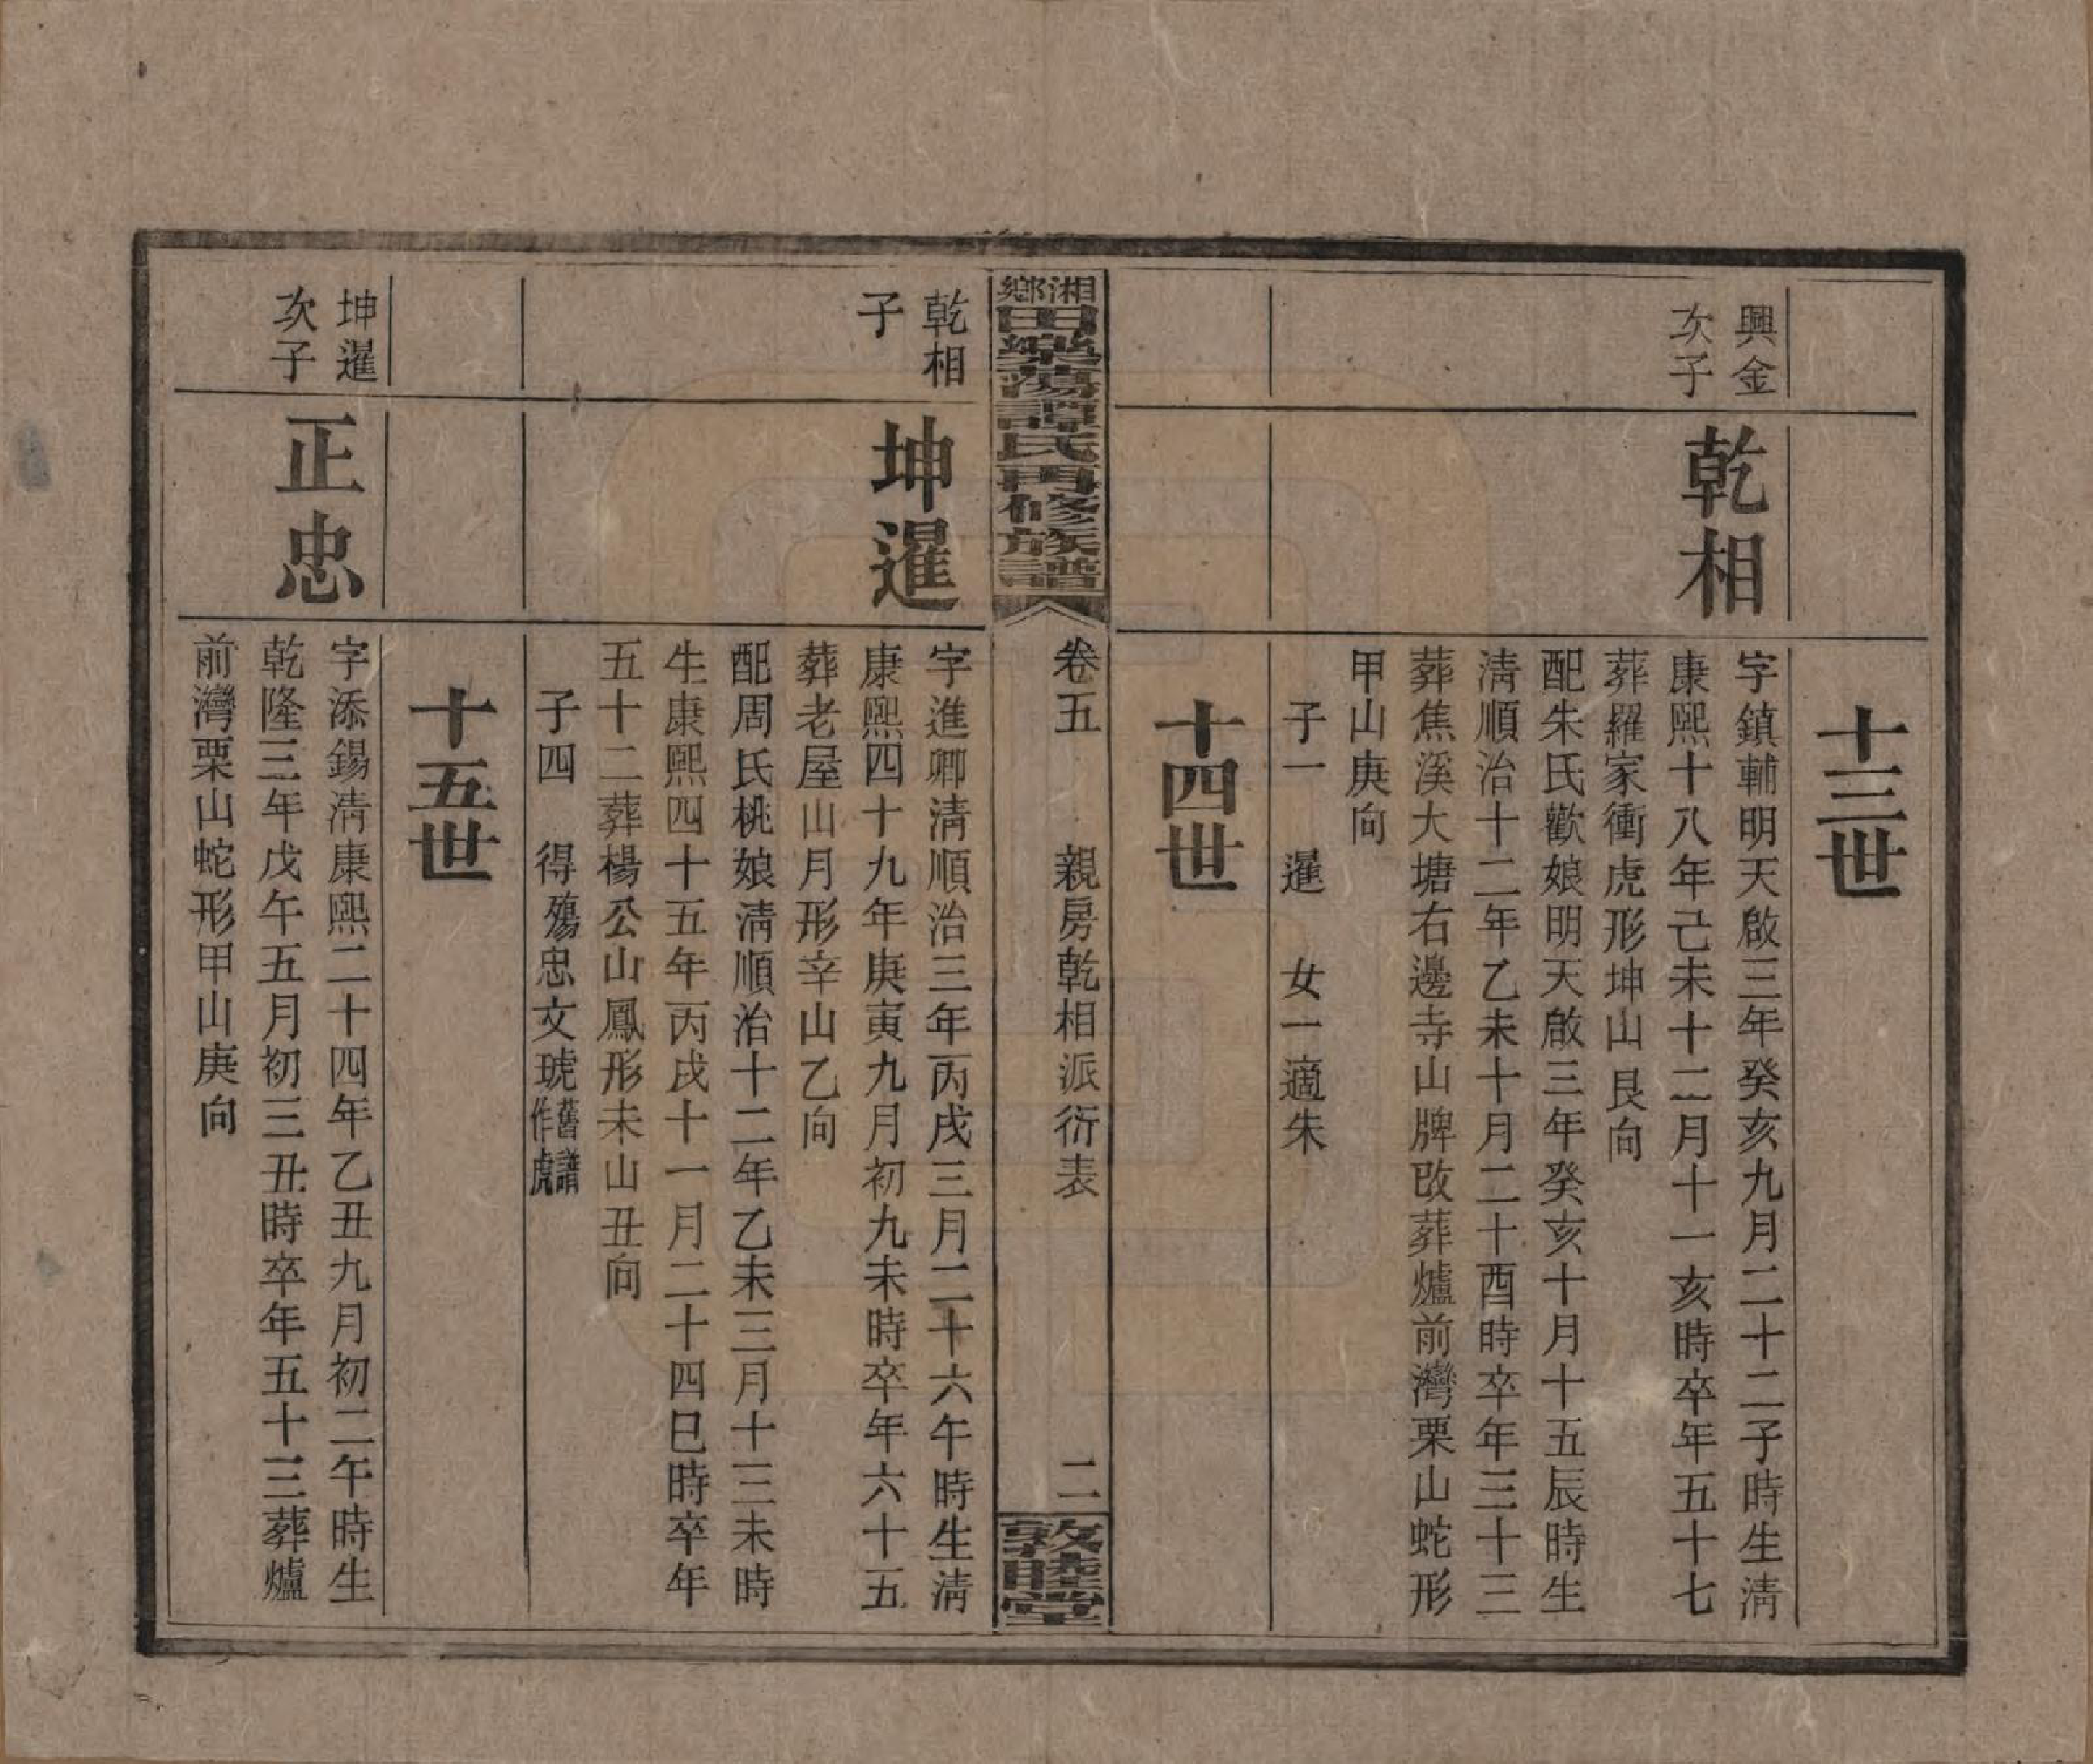 十三世
興金
次子
乾相
字鎮輔明天啟三年癸亥九月二十二子時生淸
康熙十八年己未十二月十一亥時卒年五十七
葬羅家衝虎形坤山艮向
配朱氏歡娘明天啟三年癸亥十月十五辰時生
淸順治十二年乙未十月二十酉時卒年三十三
葬焦溪大塘右邊寺山牌改葬爐前灣栗山蛇形
甲山庚向
子一 暹 女一適朱
十四世
湘鄉田樂蕩譚氏再修族譜
卷五 親房乾相派衍表 二
敦睦堂
乾相
子
坤暹
字進卿淸順治三年丙戌三月二十六午時生淸
康熙四十九年庚寅九月初九未時卒年六十五
葬老屋山月形辛山乙向
配周氏桃娘淸順治十二年乙未三月十三未時
生康熙四十五年丙戌十一月二十四巳時卒年
五十二葬楊公山鳳形未山丑向
子四 得殤忠文琥舊譜作虎
十五世
坤暹
次子
正忠
字添錫淸康熙二十四年乙丑九月初二午時生
乾隆三年戊午五月初三丑時卒年五十三葬爐
前灣栗山蛇形甲山庚向